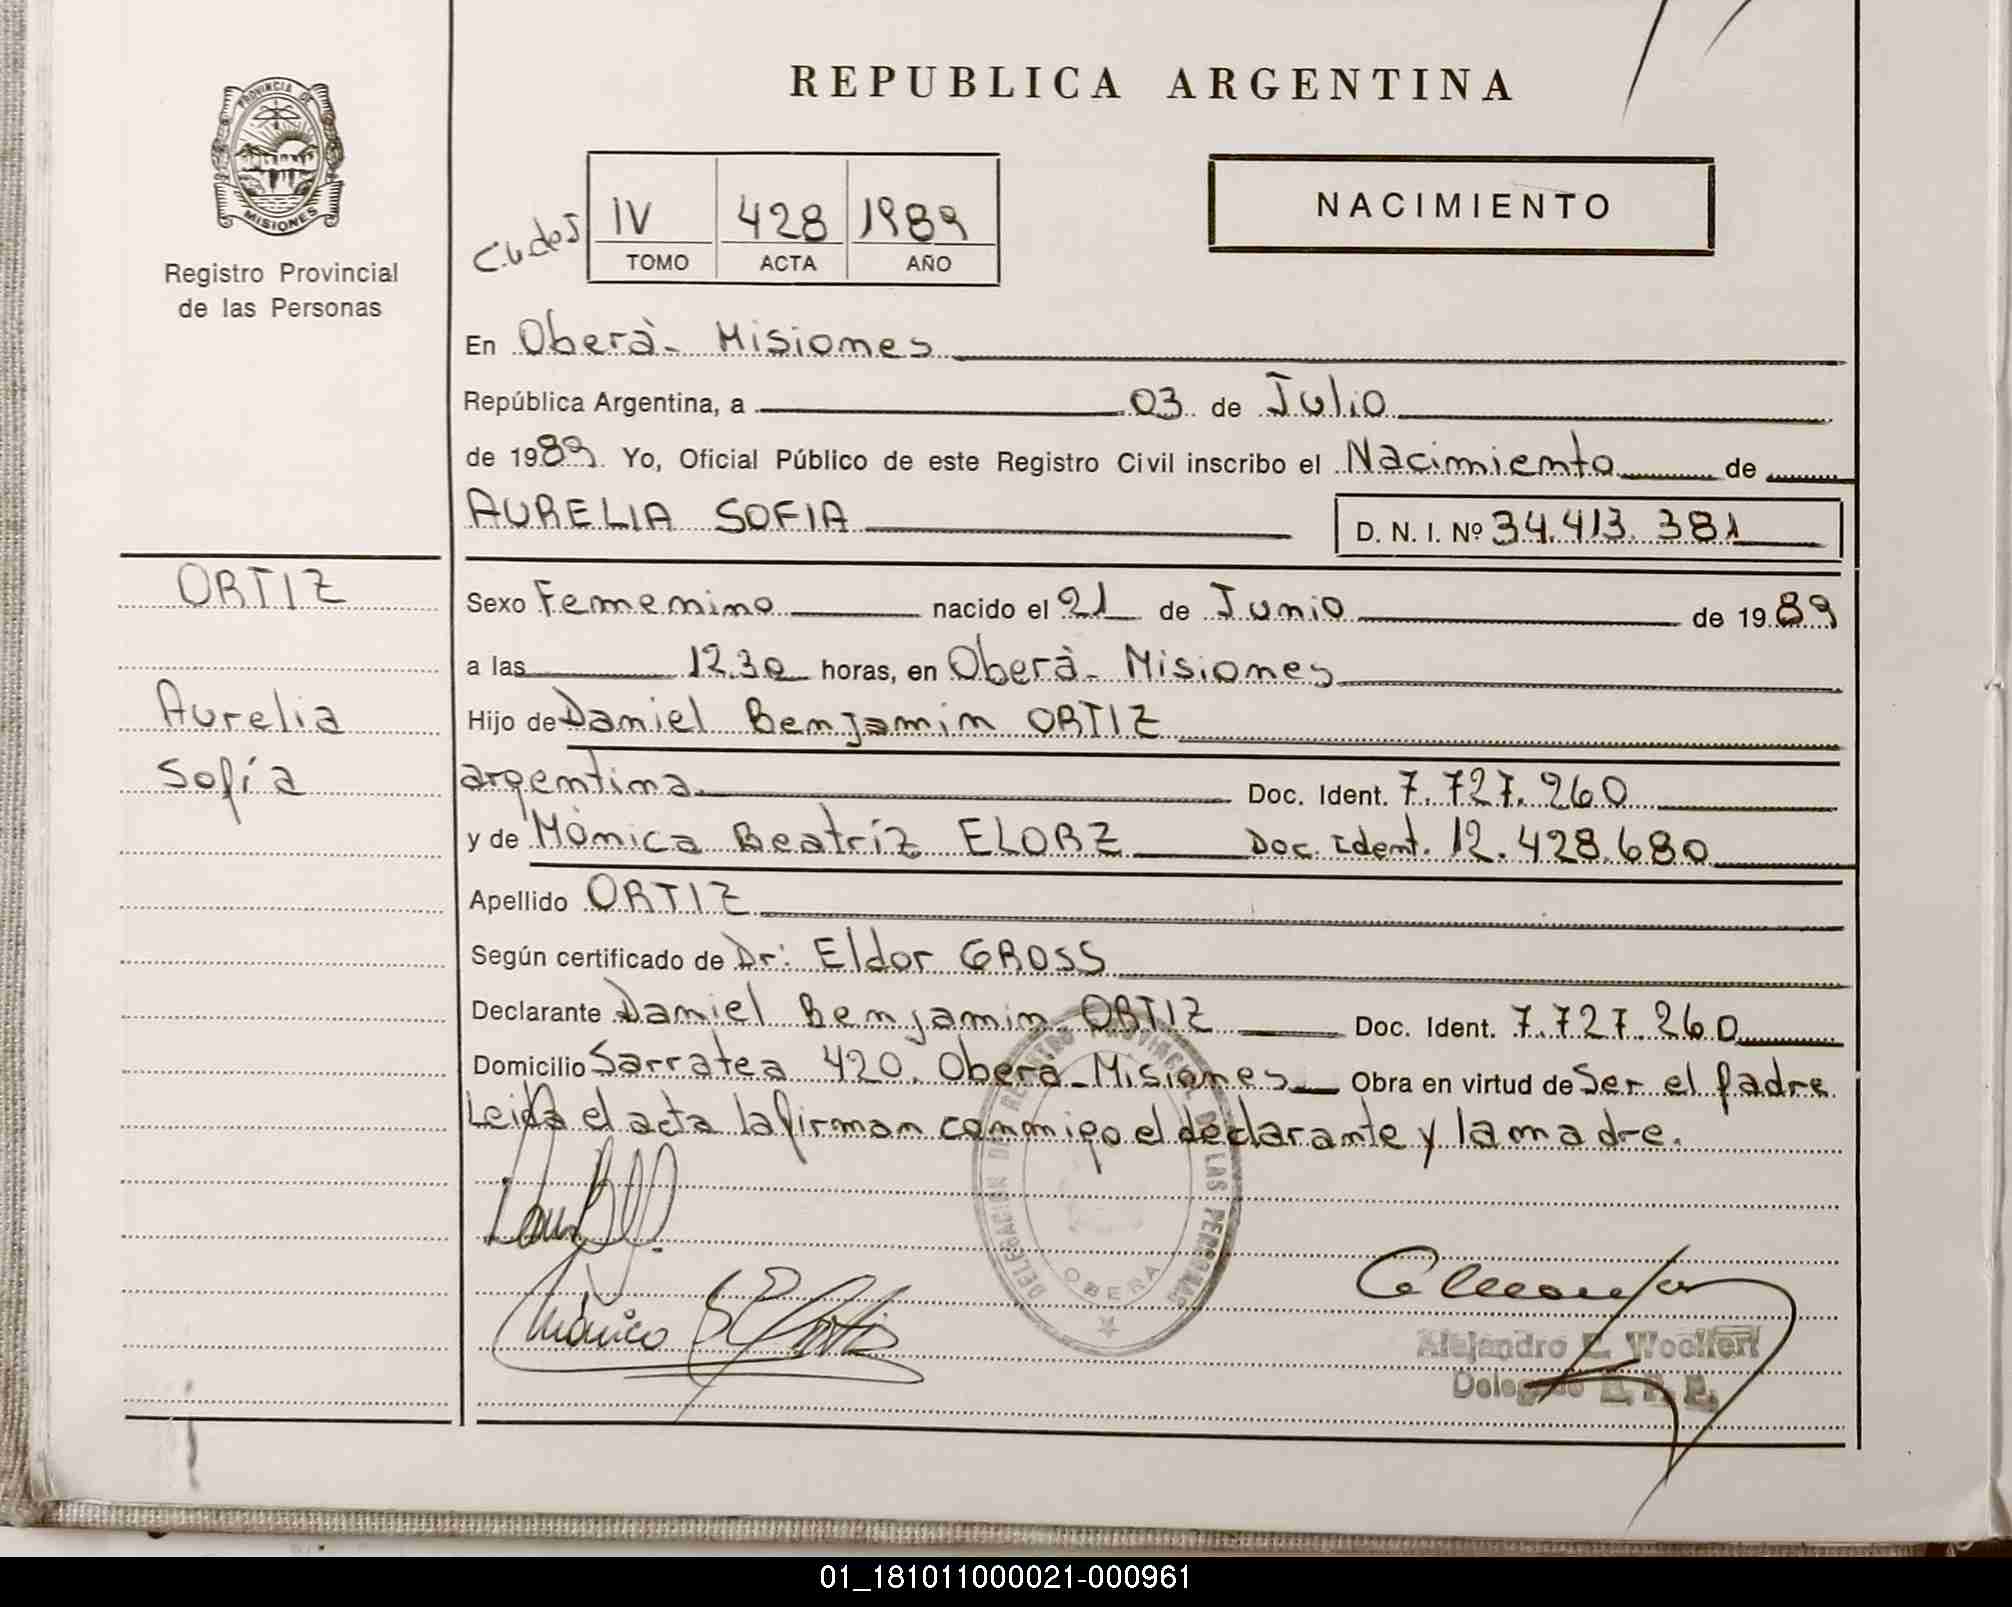 PROVINCIA DE
MISIONES
Registro Provincial
de las Personas
REPUBLICA ARGENTINA
IV 428 1989
TOMO ACTA AÑO
NACIMIENTO
En Oberà - Misiones
República Argentina, a 03 de Julio
de 1989. Yo, Oficial Público de este Registro Civil inscribo el Nacimiento de
AURELIA SOFIA D. N. I. Nº 34.413.381
ORTIZ
Aurelia
Sofía
Sexo Femenino nacido el 21 de Junio de 1989
a las 12.30 horas, en Oberà - Misiones
Hijo de Daniel Benjamin ORTIZ
argentina Doc. Ident. 7.727.260
y de Mónica Beatríz ELORZ Doc. Ident. 12.428.680
Apellido ORTIZ
Según certificado de Dr: Eldor GROSS
Declarante Daniel Benjamin ORTIZ Doc. Ident. 7.727.260
Domicilio Sarratea 420. Oberà - Misiones Obra en virtud de Ser el padre
Leida el acta la firman conmigo el declarante y la madre.
DELEGACION DEL REGISTRO PROVINCIAL DE LAS PERSONAS
OBERA
Mónica
Alejandro E.
Delegado
01_181011000021-000961